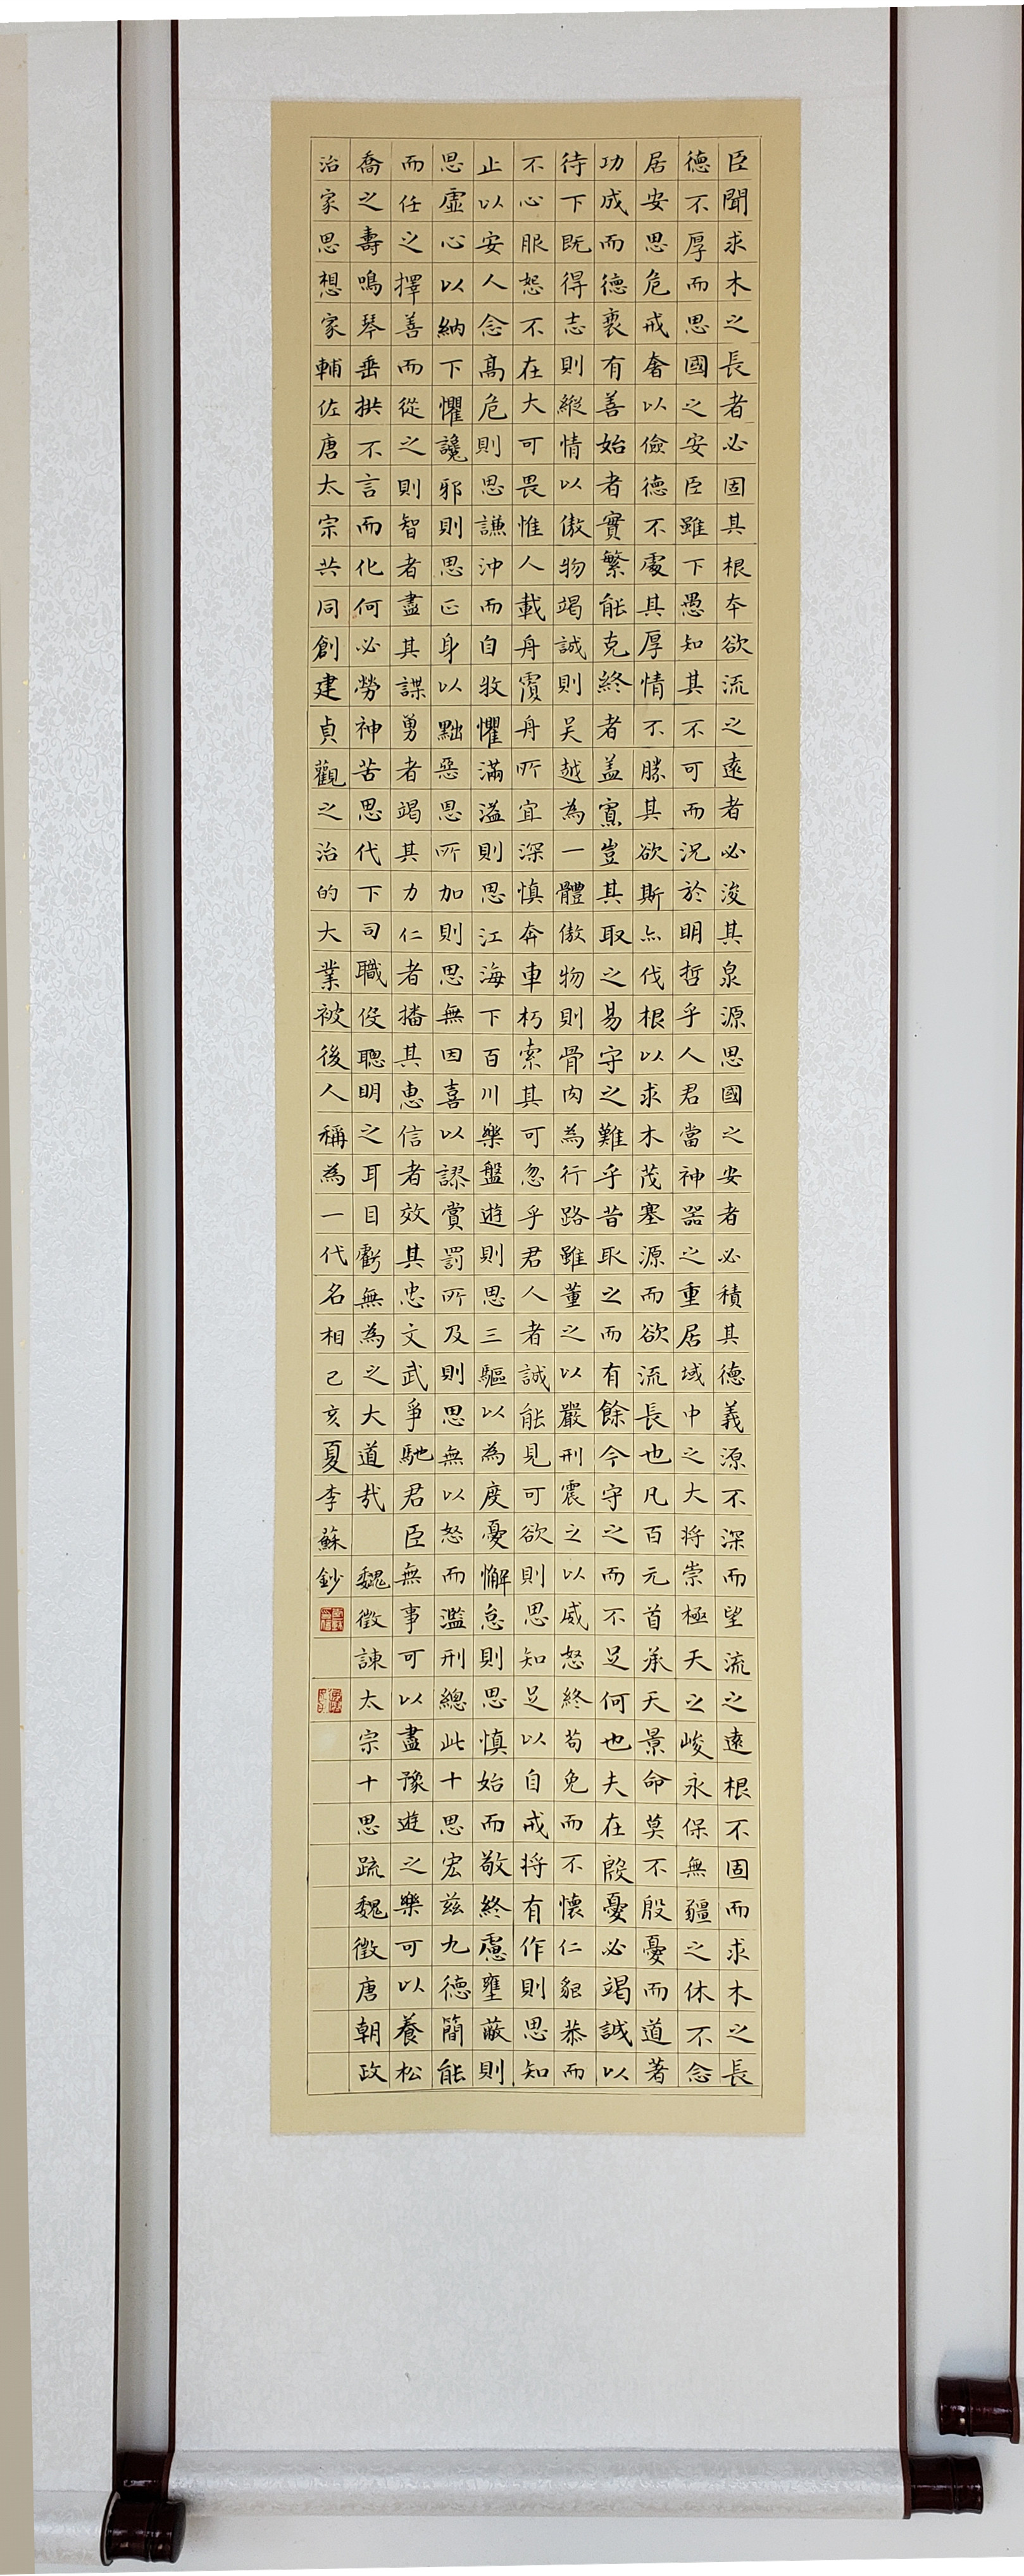 臣聞求木之長者必固其根本欲流之遠者必浚其泉源思國之安者必積其德義源不深而望流之遠根不固而求木之長
德不厚而思國之安臣雖下愚知其不可而況於明哲乎人君當神器之重居域中之大将崇極天之峻永保無疆之休不念
居安思危戒奢以儉德不處其厚情不勝其欲斯亦伐根以求木茂塞源而欲流長也凡百元首承天景命莫不殷憂而道著
功成而德衰有善始者實繁能克終者盖寡豈其取之易守之難乎昔取之而有餘今守之而不足何也夫在殷憂必竭誠以
待下既得志則縱情以傲物竭誠則吴越為一體傲物則骨肉為行路雖董之以嚴刑震之以威怒終苟免而不懷仁貌恭而
不心服怨不在大可畏惟人載舟覆舟所宜深慎奔車朽索其可忽乎君人者誠能見可欲則思知足以自戒将有作則思知
止以安人念高危則思謙沖而自牧懼滿溢則思江海下百川樂盤遊則思三驅以為度憂懈怠則思慎始而敬終慮壅蔽則
思虚心以納下懼讒邪則思正身以黜惡恩所加則思無因喜以謬賞罰所及則思無以怒而濫刑總此十思宏兹九德簡能
而任之擇善而從之則智者盡其謀勇者竭其力仁者播其惠信者效其忠文武爭馳君臣無事可以盡豫遊之樂可以養松
喬之壽鳴琴垂拱不言而化何必勞神苦思代下司職役聰明之耳目虧無為之大道哉 魏徵諫太宗十思疏魏徵唐朝政
治家思想家輔佐唐太宗共同創建貞觀之治的大業被後人稱為一代名相己亥夏李蘇鈔